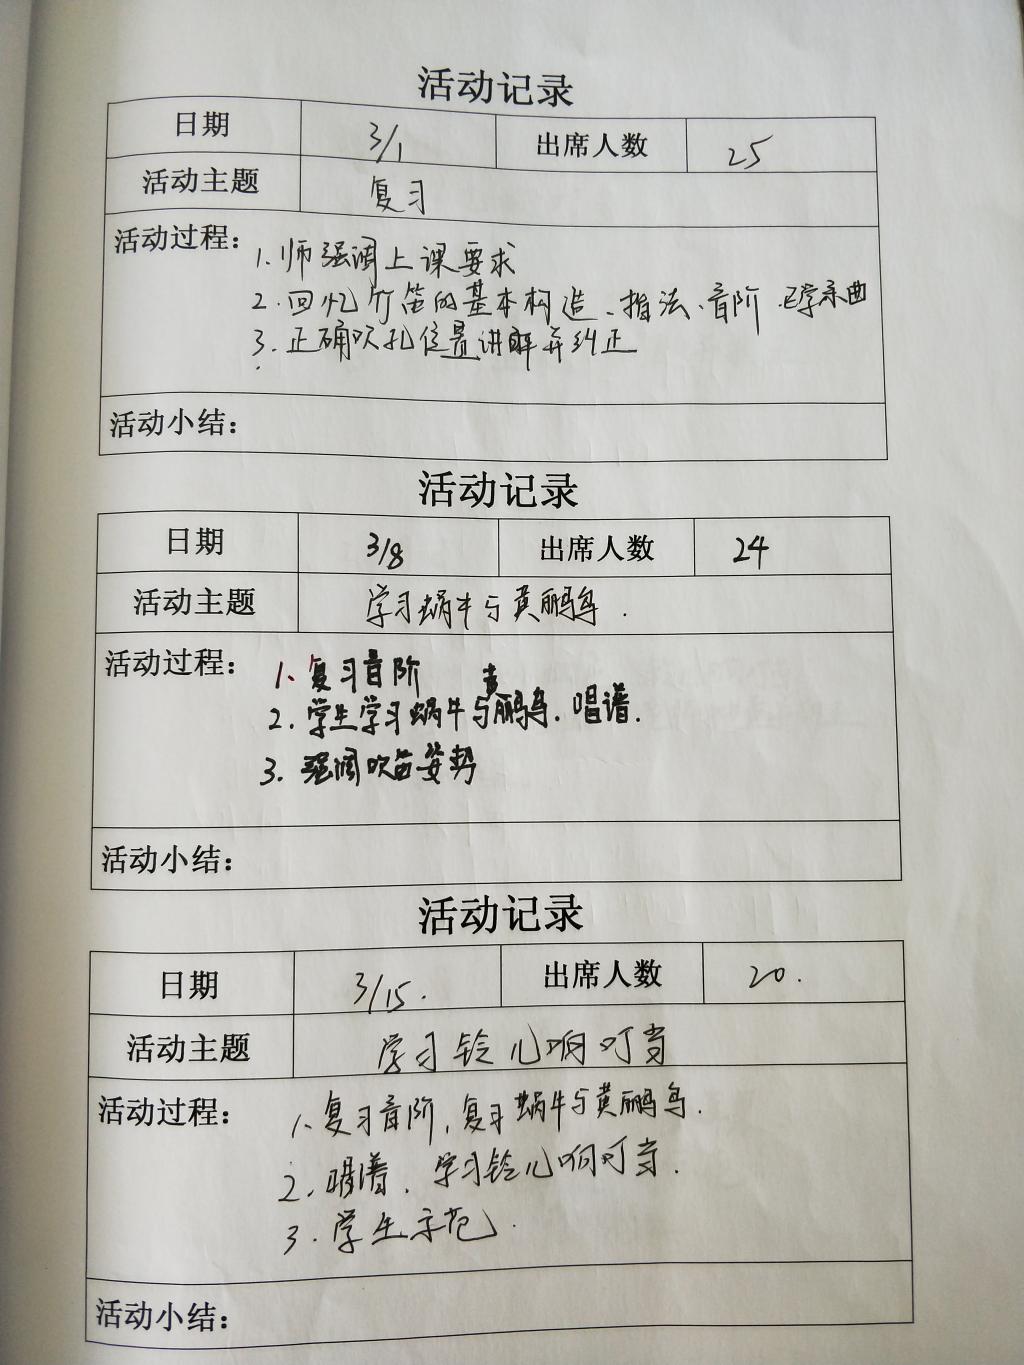 活动记录
日期 3/1 出席人数 25
活动主题 复习
活动过程：
1、师强调上课要求
2、回忆竹笛的基本构造、指法、音阶、已学乐曲
3、正确吹孔位置讲解并纠正
活动小结：
活动记录
日期 3/8 出席人数 24
活动主题 学习蜗牛与黄鹂鸟.
活动过程：
1、复习音阶
2.学生学习蜗牛与黄鹂鸟.唱谱.
3.强调吹笛姿势
活动小结：
活动记录
日期 3/15. 出席人数 20.
活动主题 学习铃儿响叮当
活动过程：
1、复习音阶,复习蜗牛与黄鹂鸟.
2.唱谱.学习铃儿响叮当.
3.学生示范.
活动小结：